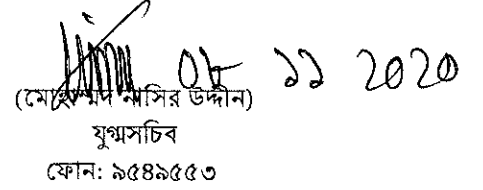 ০৮ ১১ 2020
(মোহাম্মদ নাসির উদ্দীন)
যুগ্মসচিব
ফোন: ৯৫৪৯৫৫৩